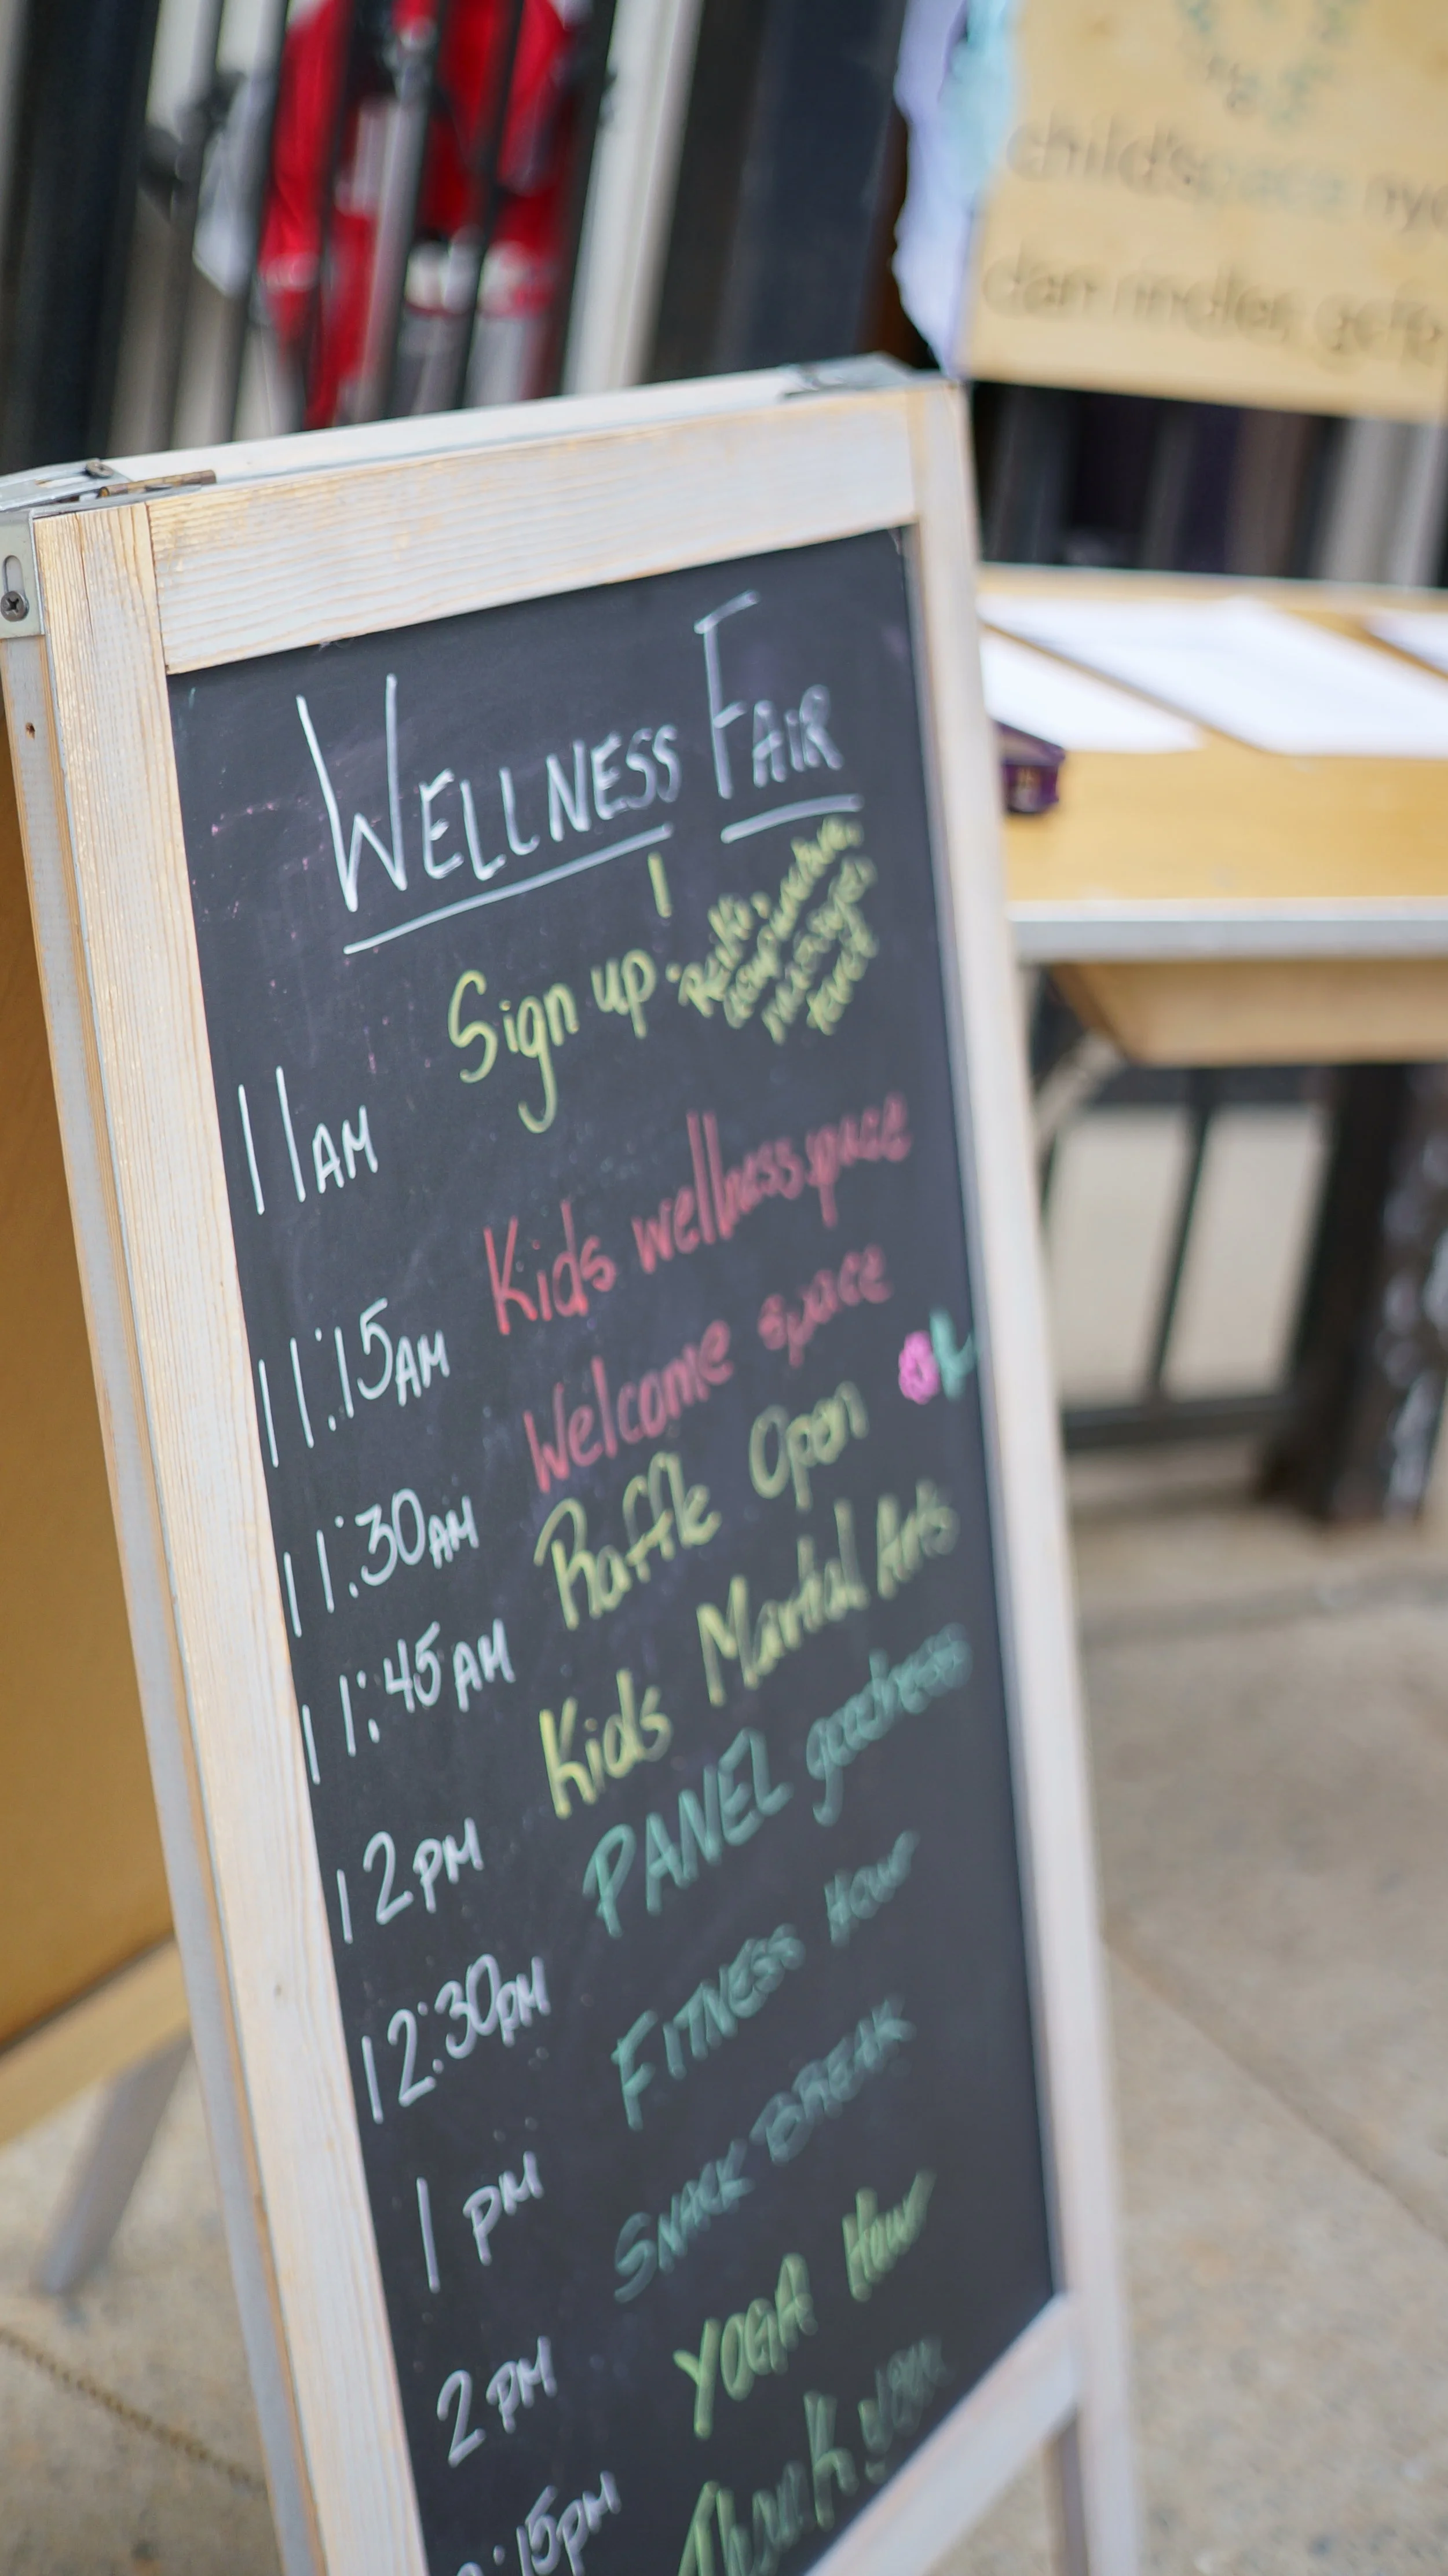 WELLNESS FAIR
11AM Sign up · Reiki,
massages
tarot
11:15AM Kids wellness space
11:30AM Welcome space
11:45AM Raffle Open
12PM Kids Martial Arts
12:30PM PANEL goodness
1PM FITNESS HOUR
2PM SNACK BREAK
:15PM YOGA HOUR
Thank you
child'space nyc
dan rindler, gcfp